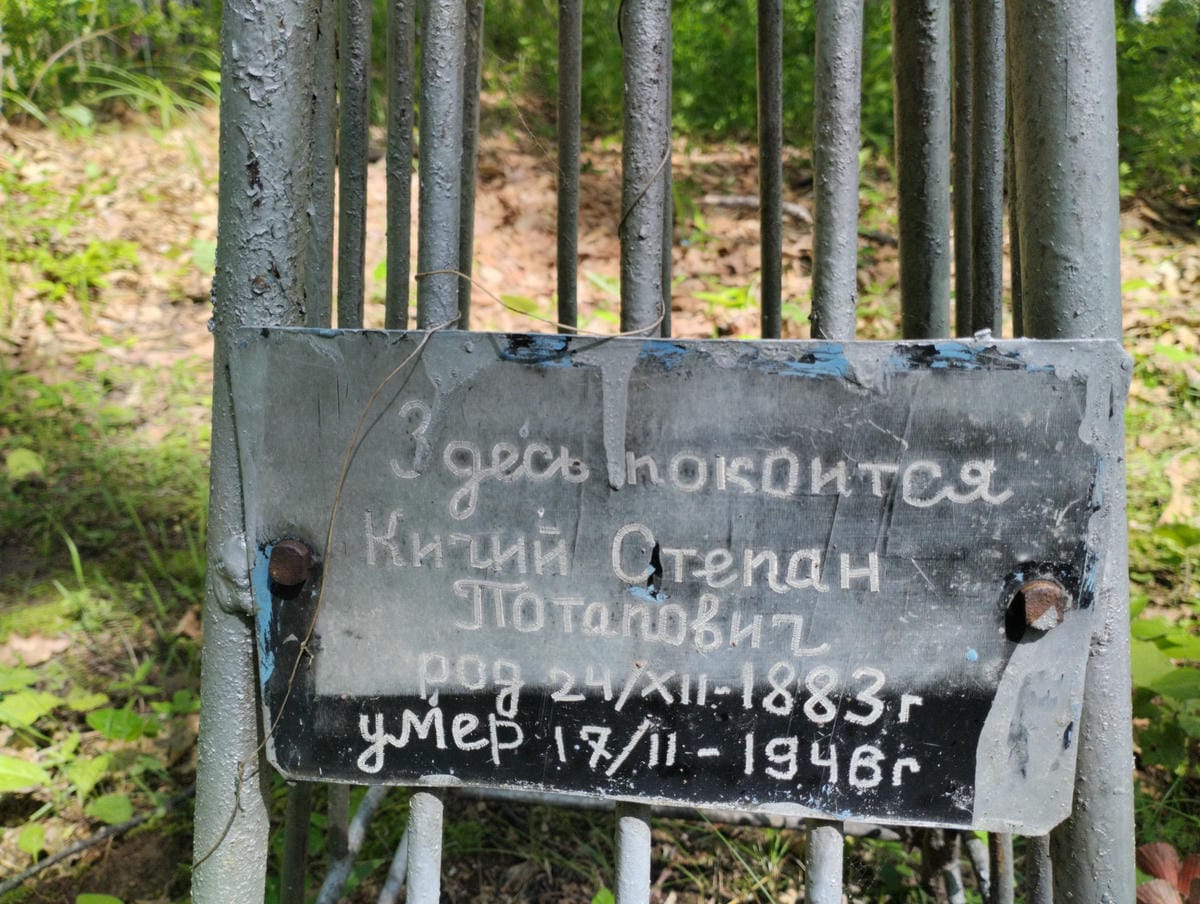 Здесь покоится
Кичий Степан
Потапович
род 24/XII-1883г
умер 17/II-1946г